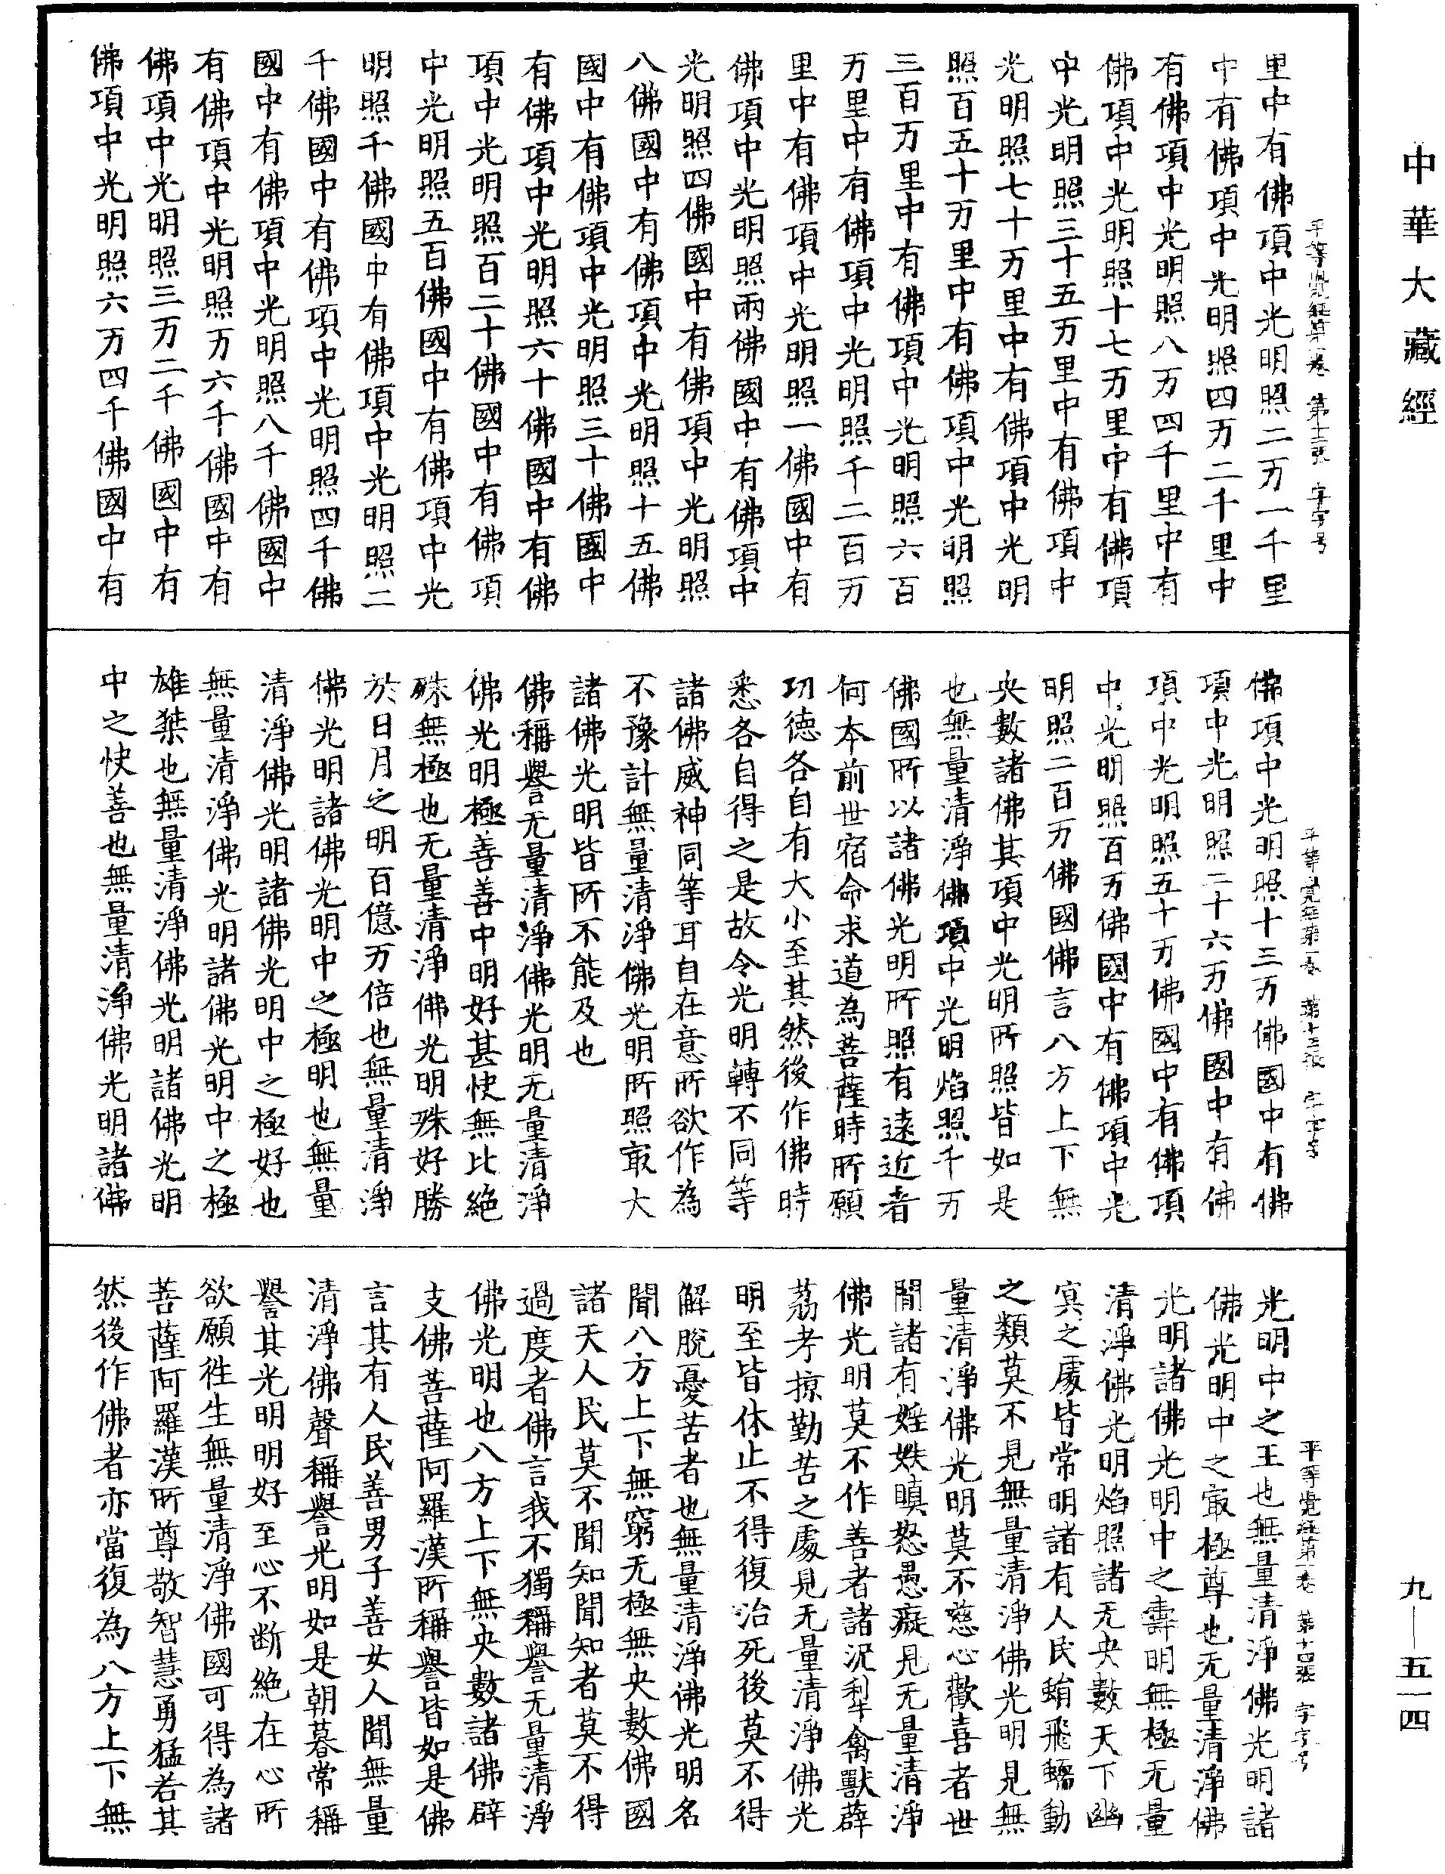 中華大藏經
里中有佛項中光明照二万一千里
中有佛項中光明照四万二千里中
有佛項中光明照八万四千里中有
佛項中光明照十七万里中有佛項
中光明照三十五万里中有佛項中
光明照七十万里中有佛項中光明
照百五十万里中有佛項中光明照
三百万里中有佛項中光明照六百
万里中有佛項中光明照千二百万
里中有佛項中光明照一佛國中有
佛項中光明照兩佛國中有佛項中
光明照四佛國中有佛項中光明照
八佛國中有佛項中光明照十五佛
國中有佛項中光明照三十佛國中
有佛項中光明照六十佛國中有佛
項中光明照百二十佛國中有佛項
中光明照五百佛國中有佛項中光
明照千佛國中有佛項中光明照二
千佛國中有佛項中光明照四千佛
國中有佛項中光明照八千佛國中
有佛項中光明照万六千佛國中有
佛項中光明照三万二千佛國中有
佛項中光明照六万四千佛國中有
平等覺經第一卷 第十三張 字号
佛項中光明照十三万佛國中有佛
項中光明照二十六万佛國中有佛
項中光明照五十万佛國中有佛項
中光明照百万佛國中有佛項中光
明照二百万佛國佛言八方上下無
央數諸佛其項中光明所照皆如是
也無量清淨佛項中光明焰照千万
佛國所以諸佛光明所照有遠近者
何本前世宿命求道為菩薩時所願
功德各自有大小至其然後作佛時
悉各自得之是故令光明轉不同等
諸佛威神同等耳自在意所欲作為
不豫計無量清淨佛光明所照㝡大
諸佛光明皆所不能及也
佛稱譽无量清淨佛光明无量清淨
佛光明極善善中明好甚快無比絕
殊無極也无量清淨佛光明殊好勝
於日月之明百億万倍也無量清淨
佛光明諸佛光明中之極明也無量
清淨佛光明諸佛光明中之極好也
無量清淨佛光明諸佛光明中之極
雄桀也無量清淨佛光明諸佛光明
中之快善也無量清淨佛光明諸佛
平等覺經第一卷 第十四張 字号
光明中之王也無量清淨佛光明諸
佛光明中之㝡極尊也无量清淨佛
光明諸佛光明中之壽明無極无量
清淨佛光明焰照諸无央數天下幽
冥之處皆常明諸有人民蜎飛蠕動
之類莫不見無量清淨佛光明見無
量清淨佛光明莫不慈心歡喜者世
間諸有婬妷瞋怒愚癡見无量清淨
佛光明莫不作善者諸泥犁禽獸薜
荔考掠勤苦之處見无量清淨佛光
明至皆休止不得復治死後莫不得
解脫憂苦者也無量清淨佛光明名
聞八方上下無窮无極無央數佛國
諸天人民莫不聞知聞知者莫不得
過度者佛言我不獨稱譽无量清淨
佛光明也八方上下無央數諸佛辟
支佛菩薩阿羅漢所稱譽皆如是佛
言其有人民善男子善女人聞無量
清淨佛聲稱譽光明如是朝暮常稱
譽其光明明好至心不斷絕在心所
欲願徃生無量清淨佛國可得為諸
菩薩阿羅漢所尊敬智慧勇猛若其
然後作佛者亦當復為八方上下無
九—五一四